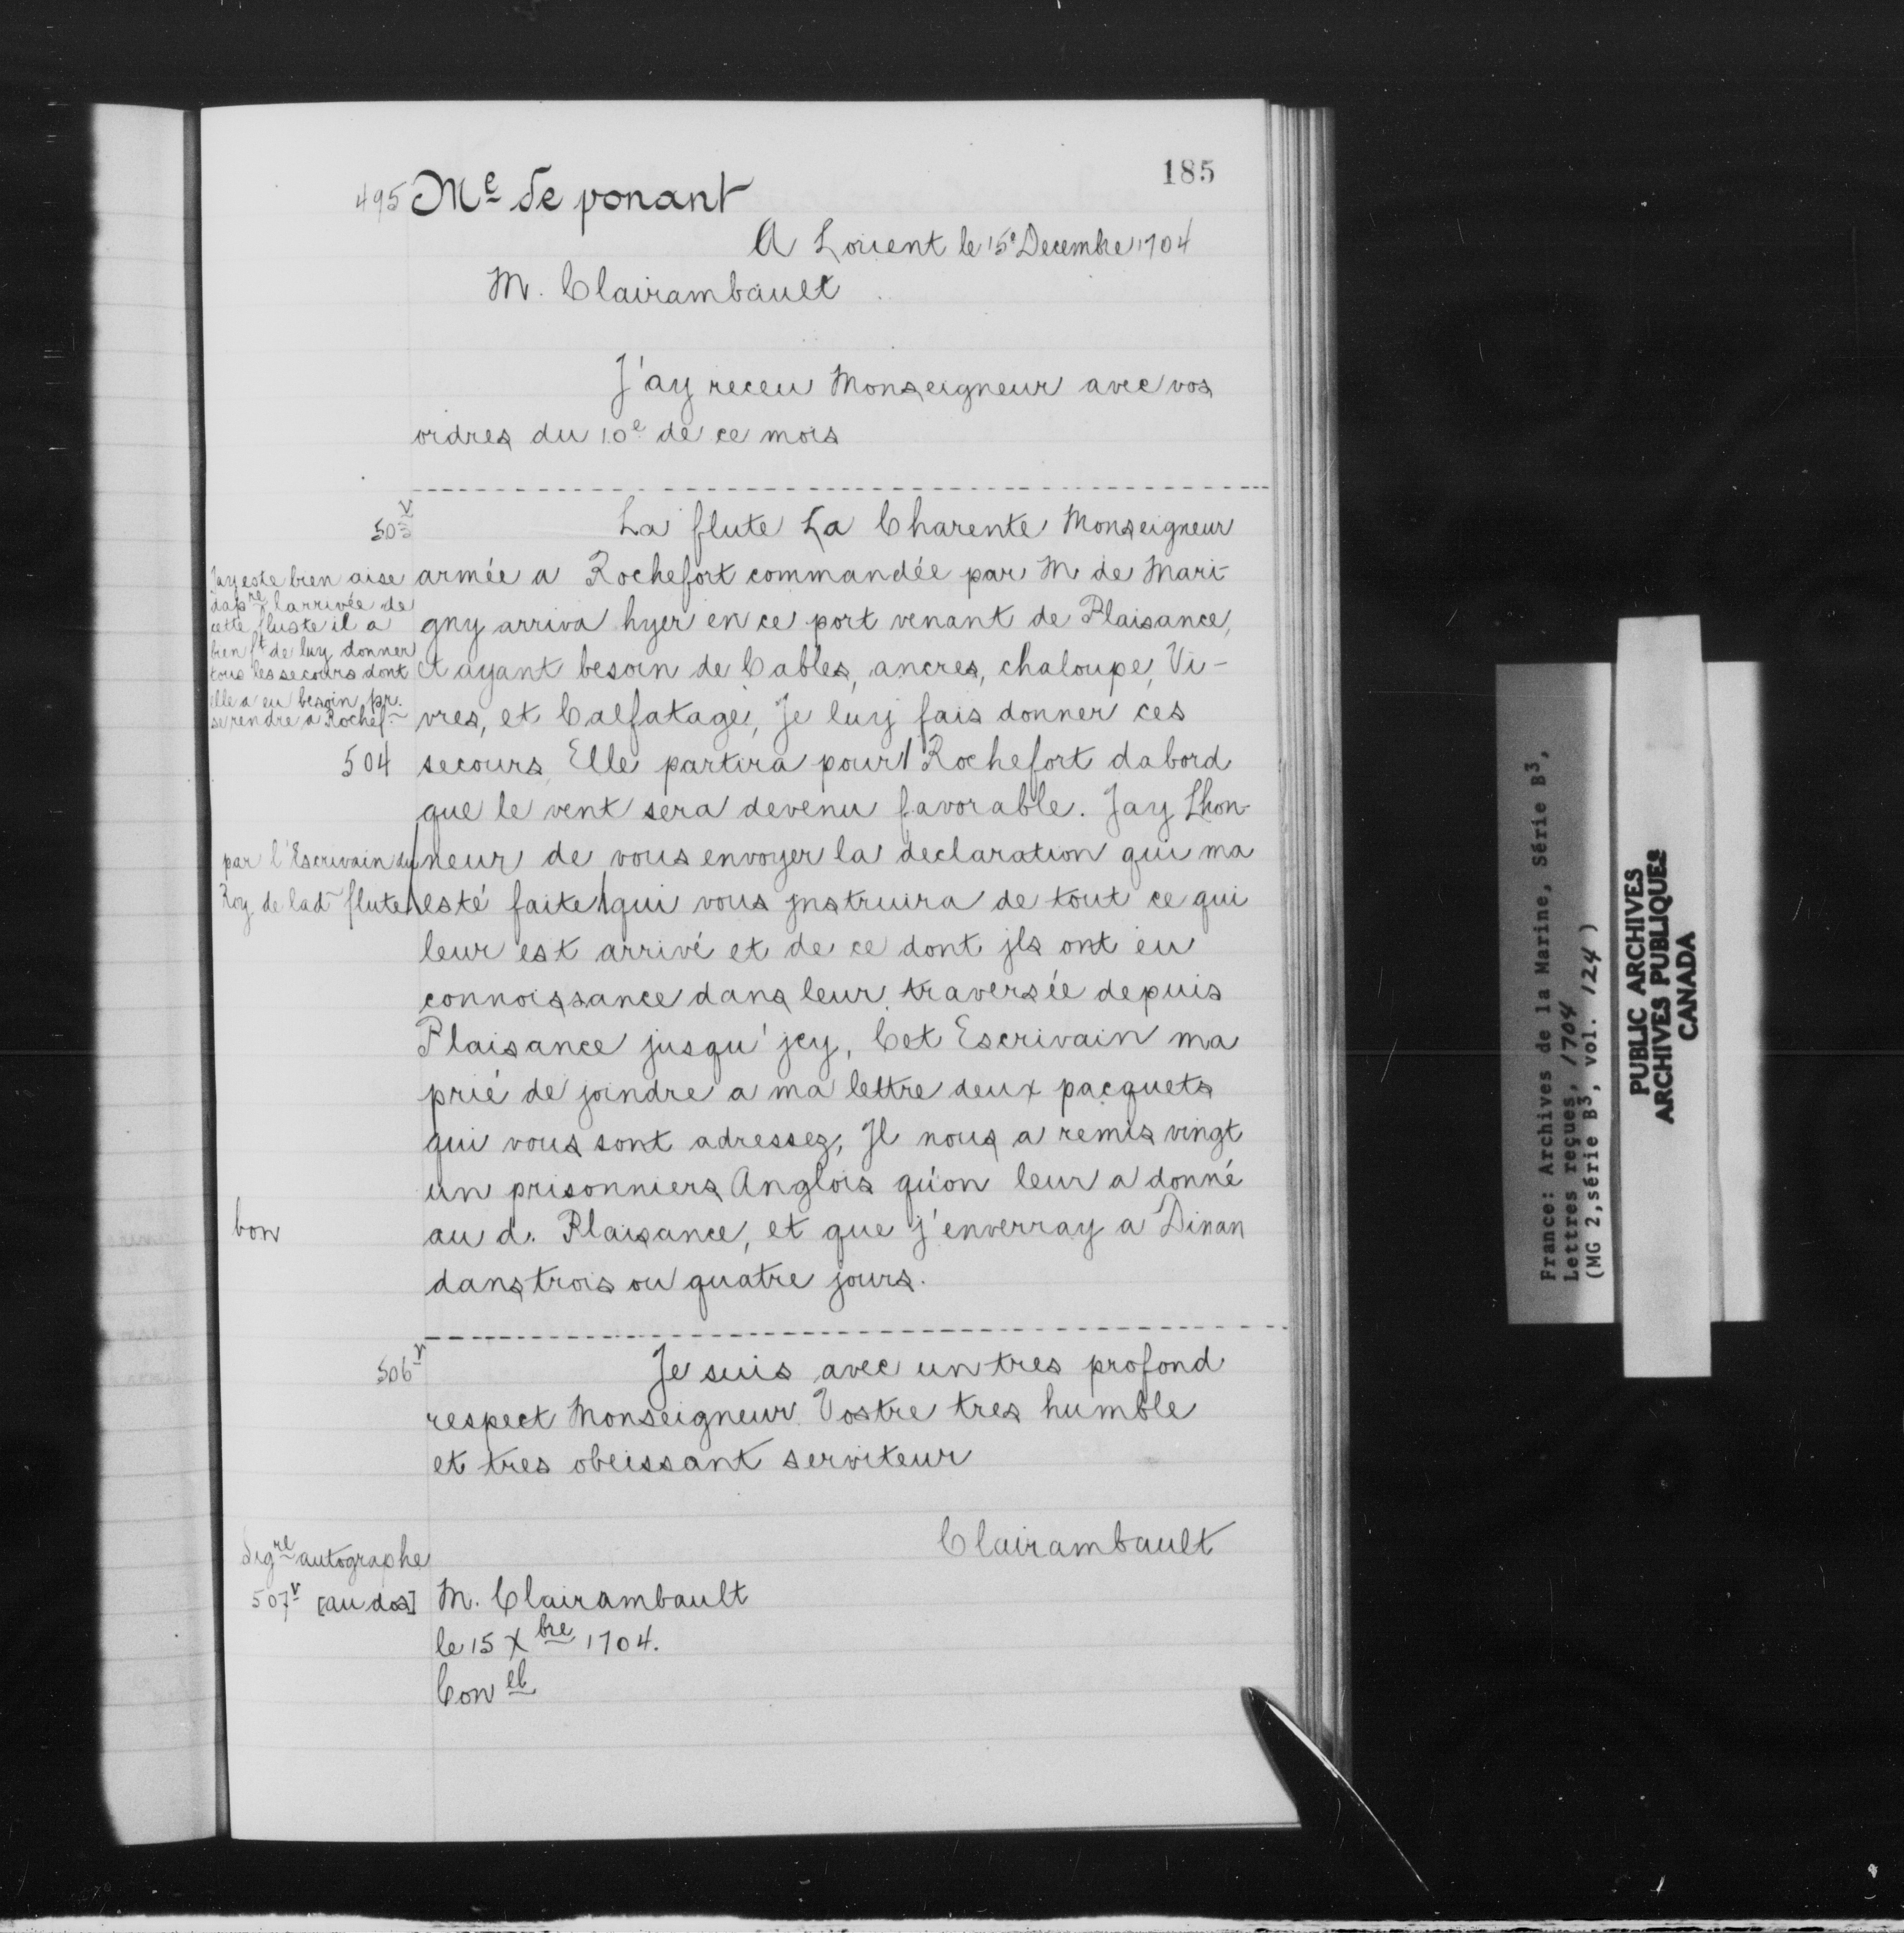 185
495 Me de ponant
A Lorient le 15e Decembre 1704
M. Clairambault
J'ay receu Monseigneur avec vos
ordres du 10e de ce mois
503v La flute La Charente Monseigneur
armée a Rochefort commandée par M de Mari-
gny arriva hyer en ce port venant de Plaisance,
et ayant besoin de Cables, ancres, chaloupe, Vi-
vres, et Calfatage, Je luy fais donner ces
504 secours Elle partira pour Rochefort dabord
que le vent sera devenu favorable. Jay Lhon-
neur de vous envoyer la declaration qui ma
esté faite qui vous jnstruira de tout ce qui
leur est arrivé et de ce dont jls ont eu
connoissance dans leur traversée depuis
Plaisance jusqu'jcy, Cet Escrivain ma
prié de joindre a ma lettre deux pacquets
qui vous sont adressez, Jl nous a remis vingt
un prisonniers Anglois qu'on leur a donné
au d. Plaisance, et que j'enverray a Dinan
dans trois ou quatre jours.
Jay este bien aise
dapre larrivée de
cette fluste il a
bien ft de luy donner
tous les secours dont
elle a eu besoin pr.
se rendre a Rochef
par l'Escrivain du
Roy de lad flute
bon
506v Je suis avec un tres profond
respect Monseigneur Vostre tres humble
et tres obeissant serviteur
Clairambault
Sigre autographe
507v [au dos] M. Clairambault
le 15 Xbre 1704.
Con el
France: Archives de la Marine, Série B3,
Lettres reçues, 1704
(MG 2, série B3, vol. 124)
PUBLIC ARCHIVES
ARCHIVES PUBLIQUES
CANADA